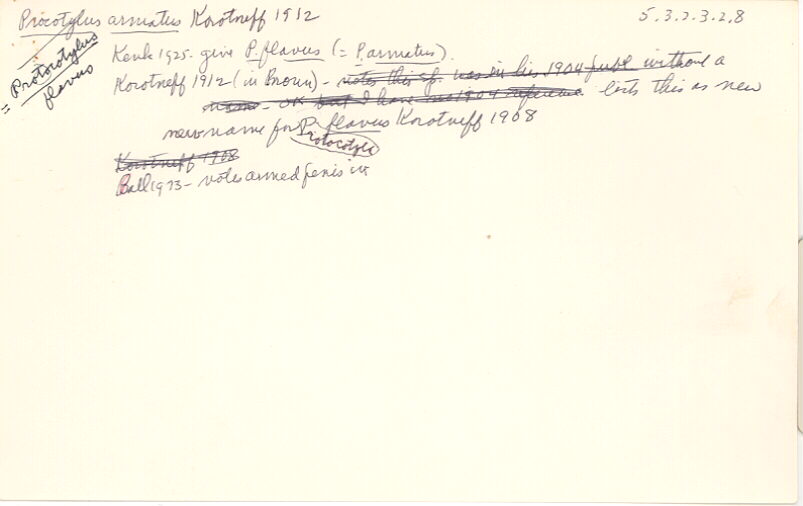 Procotylus armatus Korotneff 1912
5.3.2.3.2.8
= Protocotylus flavus
Kenk 1925. give P. flavus (= P. armatus).
Korotneff 1912 (in Broun) - notes this sp. was in his 1904 publ without a
name - OK but I have no 1904 reference lists this as new
new name for P. flavus Korotneff 1908
rotocotyle
Korotneff 1908
Ball 1973 - notes armed penis in